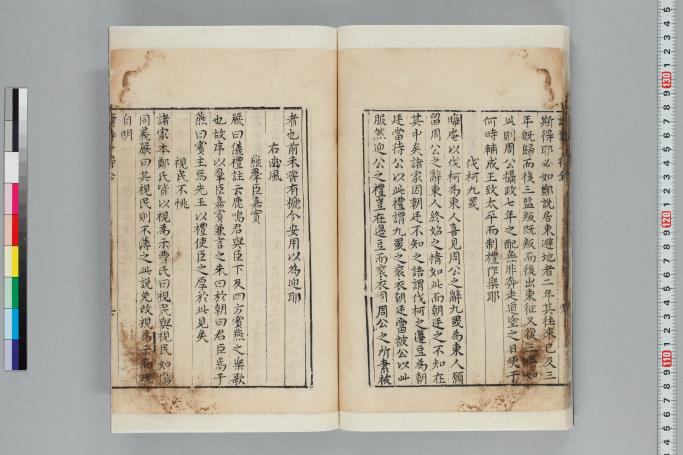 斯得耶必如鄭說居東避地者二年其往來已及三
年既歸而後三監叛既叛而後出東征又復三年如
此則周公攝政七年之配無非奔走道塗之日更于
何時輔成王致太平而制禮作樂耶
伐柯九罭
晦庵以伐柯為東人喜見周公之辭九罭為東人願
留周公之辭東人終始之情如此而朝廷之不知在
其中矣諸家因朝廷不知之語謂伐柯之籩豆為朝
廷當待公以此禮謂九罭之衮衣朝廷當被公以此
服然迎公之禮豈在籩豆而衮衣周公之所素被
者也前未嘗有褫今安用以為迎耶
右豳風
燕羣臣嘉賓
嚴曰儀禮註云鹿鳴君與臣下及四方賓燕之樂歌
也故序以羣臣嘉賓兼言之朱曰於朝曰君臣焉于
燕曰賓主焉先王以禮使臣之厚於此見矣
視民不恌
諸家本鄭氏皆以視為示曹氏曰視民與視民如傷
同義嚴曰其視民則不薄之此說免改視為示而理
自明